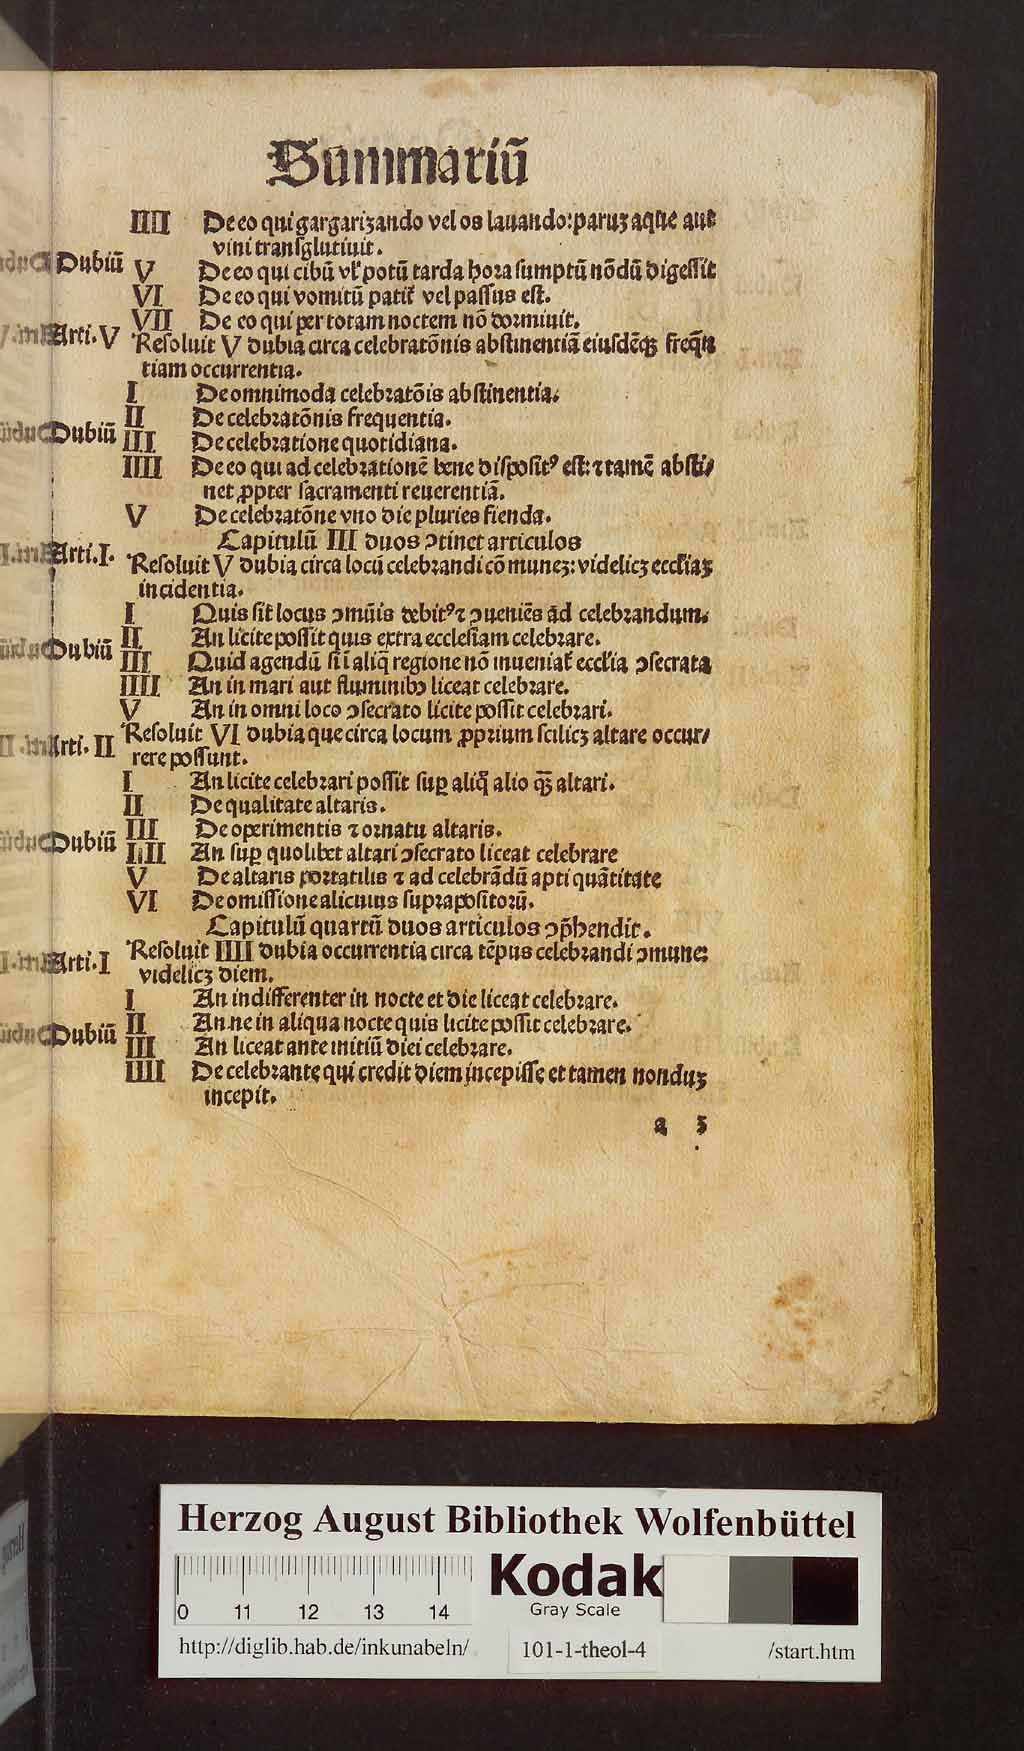 Summariū
IIII De eo qui gargarizando vel os lauando: paruꝫ aque aut
vini transglutiuit.
Dubiū V De eo qui cibū vl' potū tarda hora sumptū nōdū digessit
VI De eo qui vomitū patit' vel passus est.
VII De eo qui per totam noctem nō dormiuit.
Arti. V Resoluit V dubia circa celebratōnis abstinentiā eiusdēqꝫ freqūtiam
tiam occurrentia.
I De omnimoda celebratōis abstinentia.
II De celebratōnis frequentia.
Dubiū III De celebratione quotidiana.
IIII De eo qui ad celebrationē bene disposit⁹ est: ⁊ tamē absti/
net ꝓpter sacramenti reuerentiā.
V De celebratōne vno die pluries fienda.
Capitulū III duos ↄtinet articulos
Arti. I. Resoluit V dubia circa locū celebrandi cōmuneꝫ: videlicꝫ eccl'iaꝫ
incidentia.
I Quis sit locus ↄmūis debit⁹ ⁊ ↄueniēs ad celebrandum.
II An licite possit quis extra ecclesiam celebrare.
Dubiū III Quid agendū si ī aliq̄ regione nō inueniat' eccl'ia ↄsecrata
IIII An in mari aut fluminibꝫ liceat celebrare.
V An in omni loco ↄsecrato licite possit celebrari.
Arti. II Resoluit VI dubia que circa locum ꝓprium scilicꝫ altare occur/
rere possunt.
I An licite celebrari possit suꝑ aliq̄ alio qꝫ̄ altari.
II De qualitate altaris.
III De operimentis ⁊ ornatu altaris.
Dubiū IIII An suꝑ quolibet altari ↄsecrato liceat celebrare
V De altaris portatilis ⁊ ad celebrādū apti quātitate
VI De omissione alicuius suprapositorū.
Capitulū quartū duos articulos ↄp̄hendit.
Arti. I Resoluit IIII dubia occurrentia circa tēpus celebrandi ↄmune:
videlicꝫ diem.
I An indifferenter in nocte et die liceat celebrare.
Dubiū II An ne in aliqua nocte quis licite possit celebrare.
III An liceat ante initiū diei celebrare.
IIII De celebrante qui credit diem incepisse et tamen nonduꝫ
incepit.
a 3
Herzog August Bibliothek Wolfenbüttel
0 11 12 13 14
Kodak
Gray Scale
http://diglib.hab.de/inkunabeln/ 101-1-theol-4 /start.htm